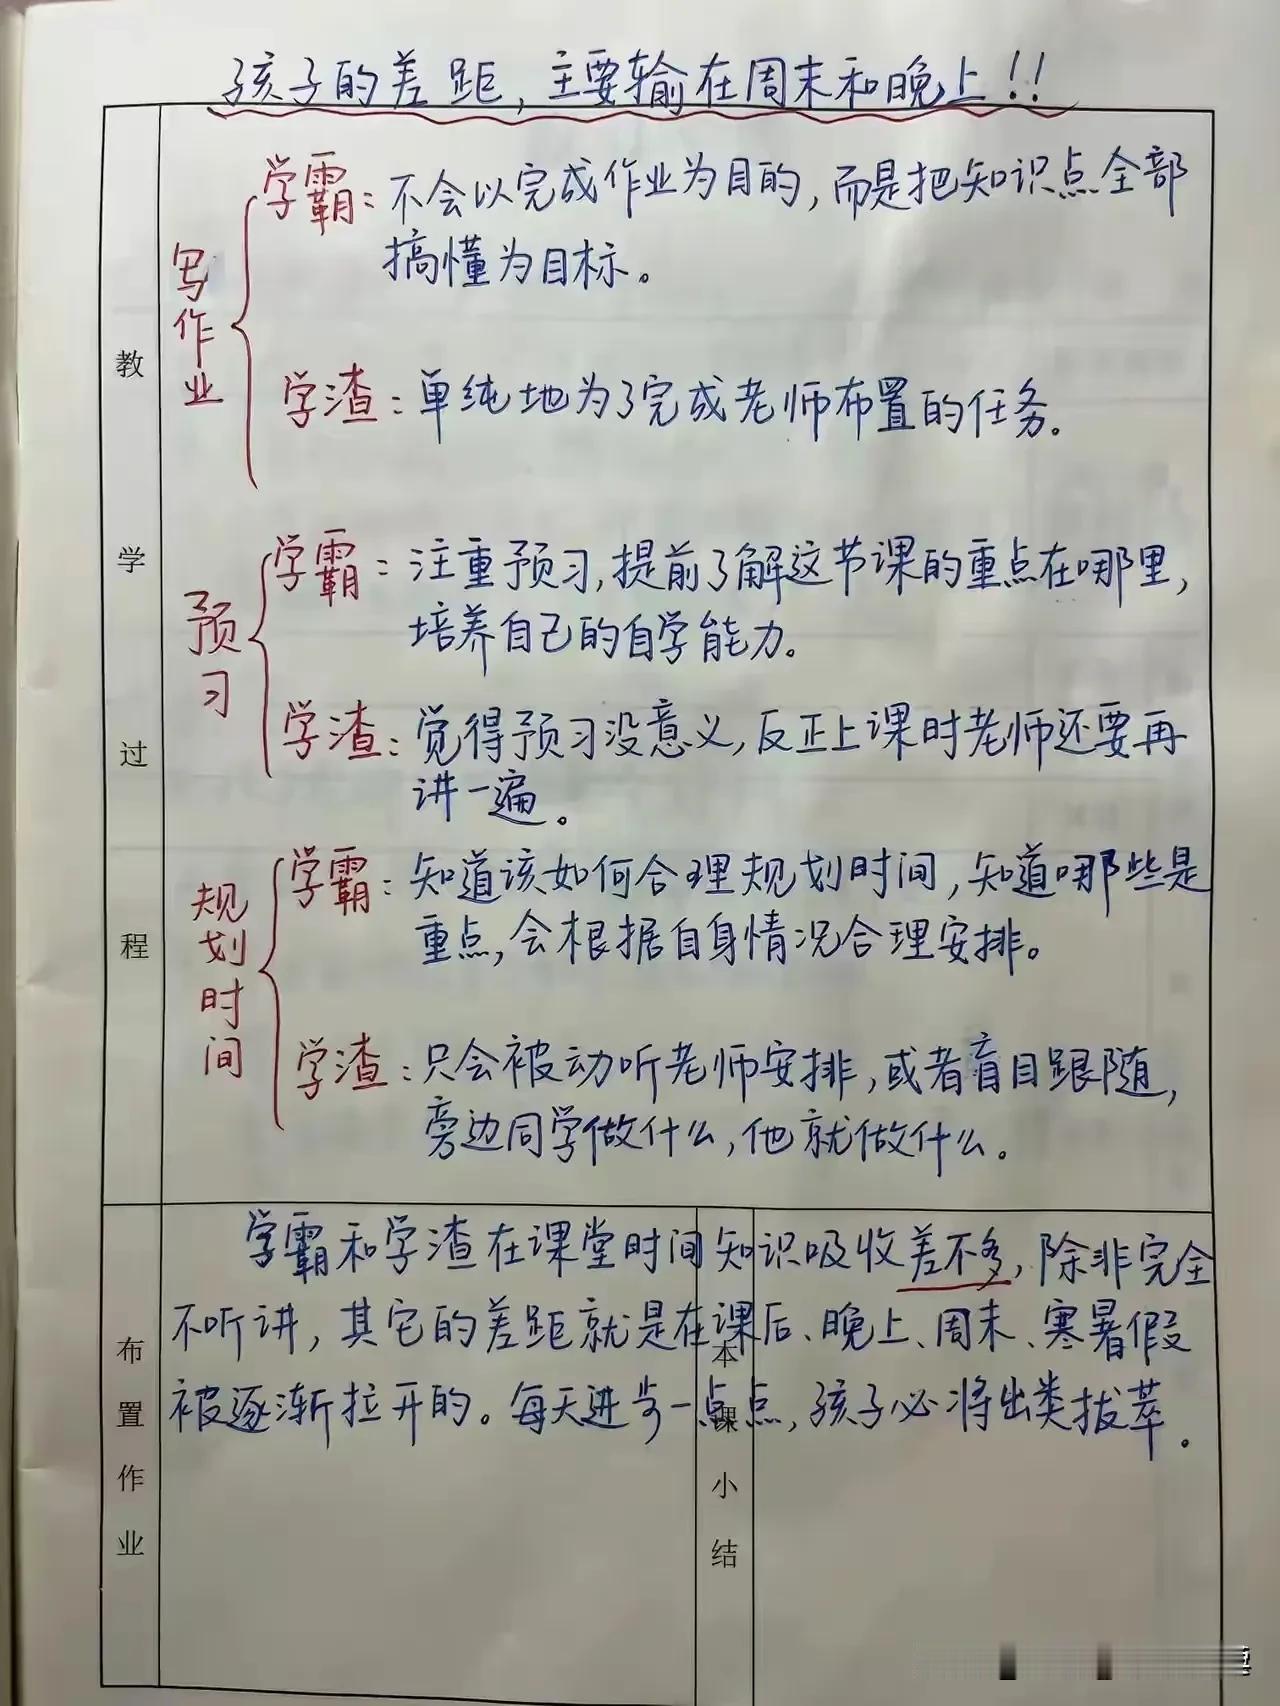 孩子的差距，主要输在周末和晚上！！
教学过程
写作业
学霸：不会以完成作业为目的，而是把知识点全部
搞懂为目标。
学渣：单纯地为了完成老师布置的任务。
预习
学霸：注重预习，提前了解这节课的重点在哪里，
培养自己的自学能力。
学渣：觉得预习没意义，反正上课时老师还要再
讲一遍。
规划时间
学霸：知道该如何合理规划时间，知道哪些是
重点，会根据自身情况合理安排。
学渣：只会被动听老师安排，或者盲目跟随，
旁边同学做什么，他就做什么。
布置作业
本课小结
学霸和学渣在课堂时间知识吸收差不多，除非完全
不听讲，其它的差距就是在课后、晚上、周末、寒暑假
被逐渐拉开的。每天进步一点点，孩子必将出类拔萃。